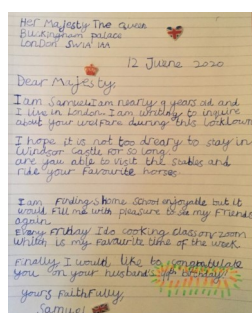 Her Majesty The Queen
Buckingham palace
London SW1A 1AA
12 Juene 2020
Dear Majesty,
I am Samuel I am nearly 9 years old and
I live in London. I am writing to inquire
about your welfare during this lockdown
I hope it is not too dreary to stay in
Windsor Castle for so long.
are you able to visit the stables and
ride your favourite horses.
I am finding home school enjoyable but it
would fill me with pleasure to see my Friends
again.
Every Friday I do cooking class on zoom
which is my favourite time of the week
Finally I would like to congratulate
you on your husband's birthday!
yours faithfully,
Samuel